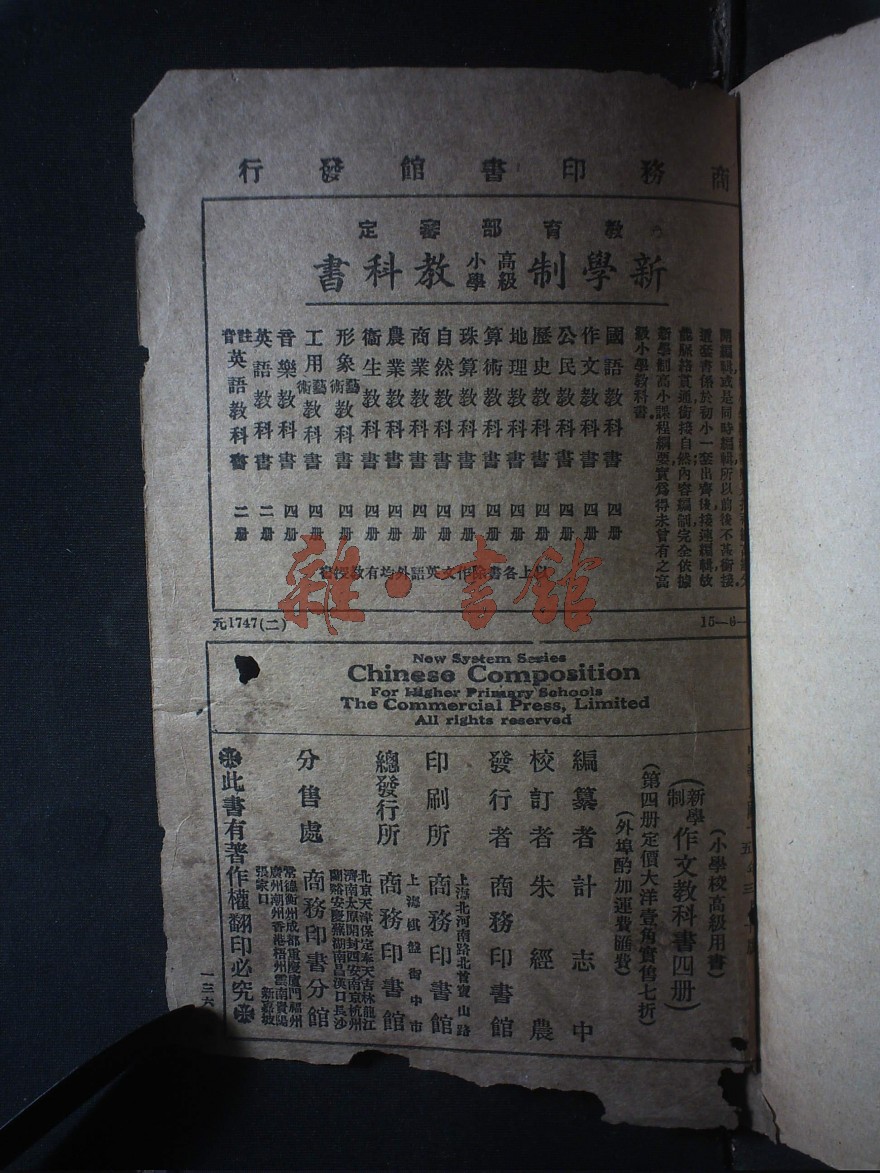 商務印書館發行
教育部審定
新學制高級小學教科書
開編輯,或是同時編輯,所以前後不甚銜接.
這套書係於初小一套出齊後,接連編輯,故
能脈絡貫通,銜接自然;內容編制,完全依據
新學制高小課程綱要,實爲得未曾有之高
級小學教科書.
國語教科書 四册
作文教科書 四册
公民教科書 四册
歷史教科書 四册
地理教科書 四册
算術教科書 四册
珠算教科書 四册
自然教科書 四册
商業教科書 四册
農業教科書 四册
衞生教科書 四册
形象藝術教科書 四册
工用藝術教科書 四册
音樂教科書 四册
英語教科書 二册
註音英語教科書 二册
以上各書除作文英語外均有教授書
元1747(二)
15—6—
雜·書館
New System Series
Chinese Composition
For Higher Primary Schools
The Commercial Press, Limited
All rights reserved
(小學校高級用書)
(新學制作文教科書四册)
(第四册定價大洋壹角實售七折)
(外埠酌加運費匯費)
編纂者 計志中
校訂者 朱經農
發行者 商務印書館
印刷所 上海北河南路北首寶山路 商務印書館
總發行所 上海棋盤街中市 商務印書館
分售處 商務印書分館
北京天津保定奉天吉林龍江
濟南太原開封西安南京杭州
蘭谿安慶蕪湖南昌漢口長沙
常德衡州成都重慶廈門福州
廣州潮州香港梧州雲南貴陽
張家口 新嘉坡
此書有著作權翻印必究
一三六